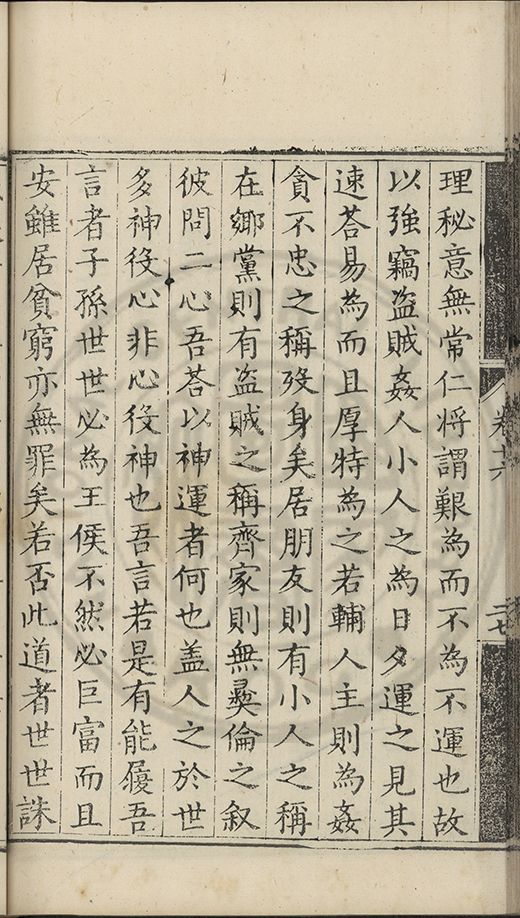 卷十六
二七
理秘意無常仁将謂艱為而不為不運也故
以強竊盗賊姦人小人之為日夕運之見其
速荅易為而且厚特為之若輔人主則為姦
貪不忠之稱歿身矣居朋友則有小人之稱
在鄉黨則有盗賊之稱齊家則無彝倫之叙
彼問二心吾荅以神運者何也盖人之於世
多神役心非心役神也吾言若是有能履吾
言者子孫世世必為王侯不然必巨富而且
安雖居貧窮亦無罪矣若否此道者世世誅